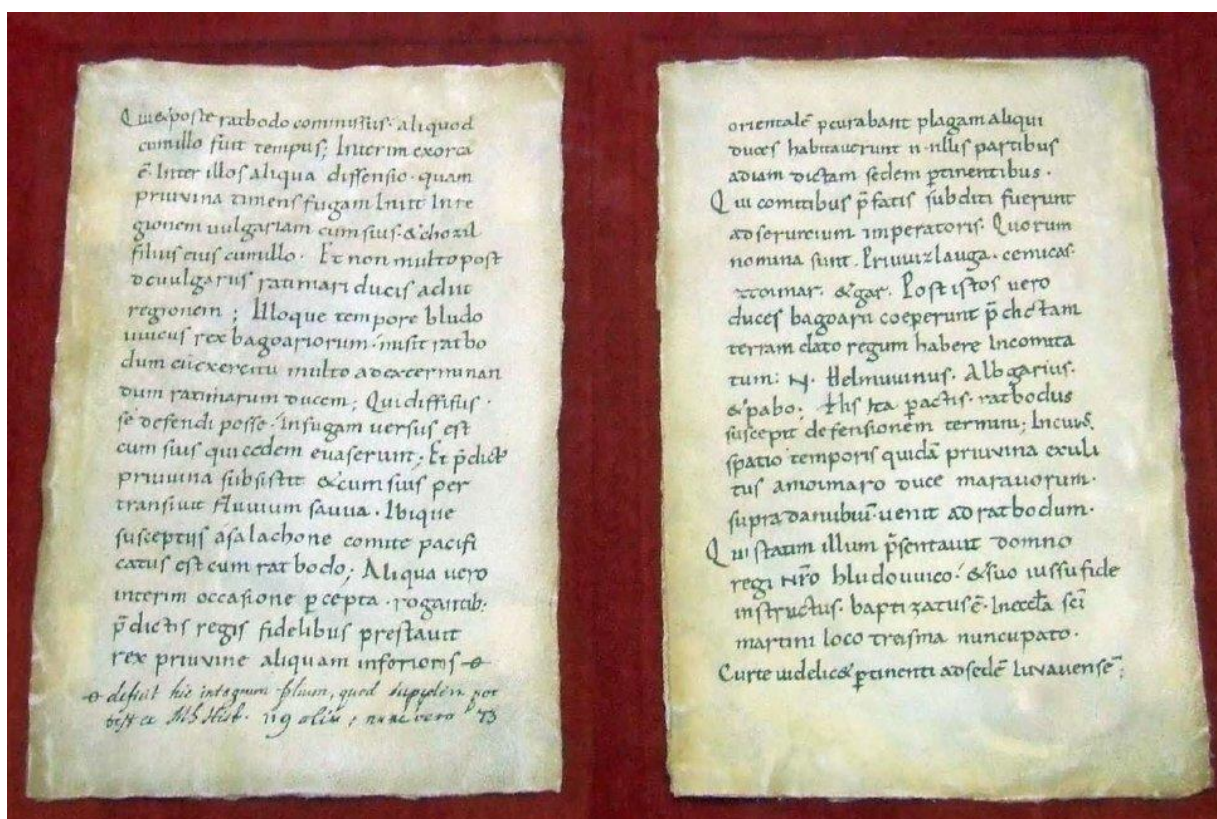 Qui & poste ratbodo commissus· aliquod
cum illo fuit tempus; Interim exorta
ē· Inter illos aliqua dissensio· quam
priuuina timens fugam Iniit In re
gionem uulgariam cum suis· & chozil
filius eius cum illo· Et non multo post
de uulgariis ratimari ducis adiit
regionem; Illoque tempore bludo
uuicus rex bagoariorum· misit ratbo
dum cū exercitu multo ad exterminan
dum ratimarum ducem; Qui diffisus·
se defendi posse· in fugam uersus est
cum suis qui cedem euaserunt; Et p̄dict
priuuina subsistit & cum suis per
transiuit fluuium sauua· Ibique
susceptus a salachone comite pacifi
catus est cum ratbodo; Aliqua uero
interim occasione pcepta· rogantib:
p̄dictis regis fidelibus prestauit
rex priuuine aliquam inferioris
deficit hic integrum folium, quod suppleri pot
est ex Ms Hist. 119 olim; nunc vero 73
orientalē pcurabant plagam aliqui
duces habitauerunt in illis partibus
ad iam dictam sedem ptinentibus·
Qui comitibus p̄fatis subditi fuerunt
ad seruitium imperatoris· Quorum
nomina sunt· Priuuizlauga· cemicas·
ztoimar· & gar· Post istos uero
duces bagoarii coeperunt p̄dictam
terram dato regum habere In comita
tum: N· Helmuuinus· Albgarius·
& pabo; His Ita pactis· ratbodus
suscepit defensionem termini; In cuius
spatio temporis quidā priuuina exuli
tus a moimaro duce marauorum·
supra danubiū· uenit ad ratbodum·
Qui statim illum p̄sentauit domno
regi nr̄o hludouuico· & suo iussu fide
instructus· baptizatus ē· In eccl̄a sc̄i
martini loco treisma nuncupato·
Curte uidelic& ptinenti ad sedē Iuuauensē;